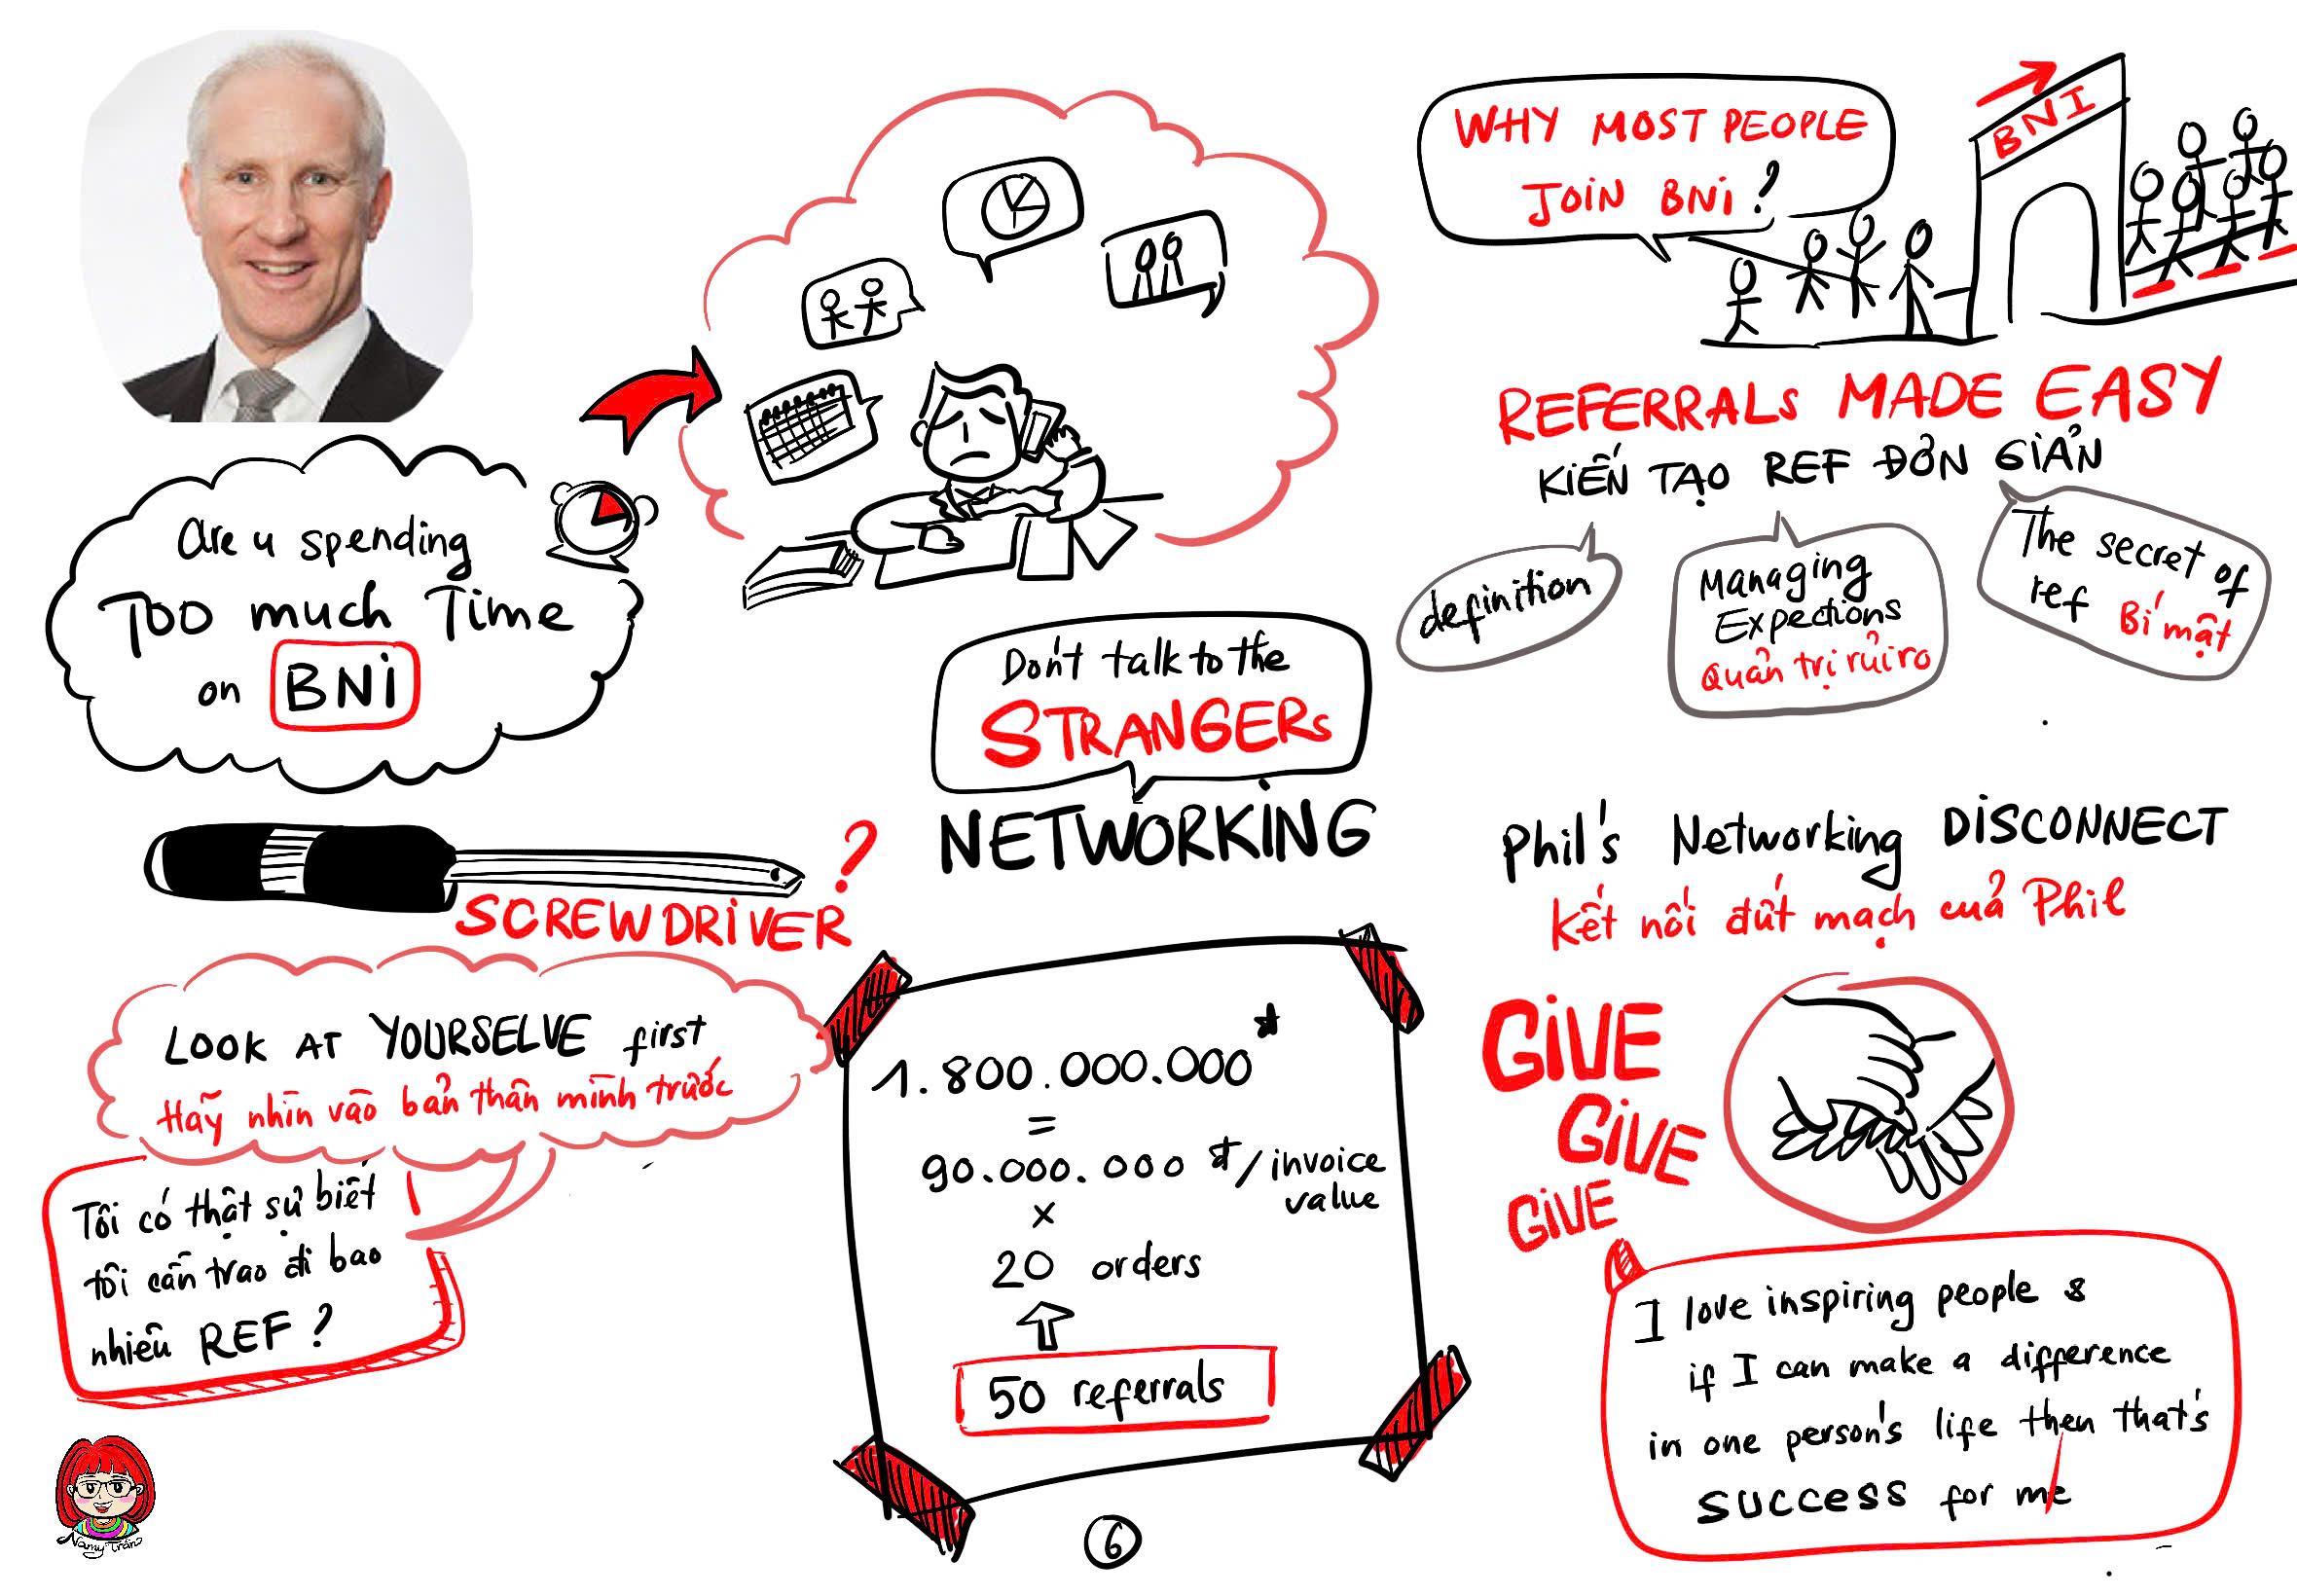 are u spending
Too much Time
on BNi
WHY MOST PEOPLE
JOiN BNi?
BNI
REFERRALs MADE EASY
KIẾN TẠO REF ĐƠN GIẢN
definition
Managing
Expections
Quản trị rủi ro
The secret of
ref Bí mật
Don't talk to the
STRANGERs
NETWORKiNG
SCREWDRiVER?
LOOK AT YOURSELVE first
Hãy nhìn vào bản thân mình trước
Tôi có thật sự biết
tôi cần trao đi bao
nhiêu REF?
1.800.000.000 đ
=
90.000.000 đ/invoice
value
x
20 orders
50 referrals
6
Phil's Networking DiSCONNECT
Kết nối đứt mạch của Phil
GiVE
GiVE
GiVE
I love inspiring people &
if I can make a difference
in one person's life then that's
success for me
Namy Trần